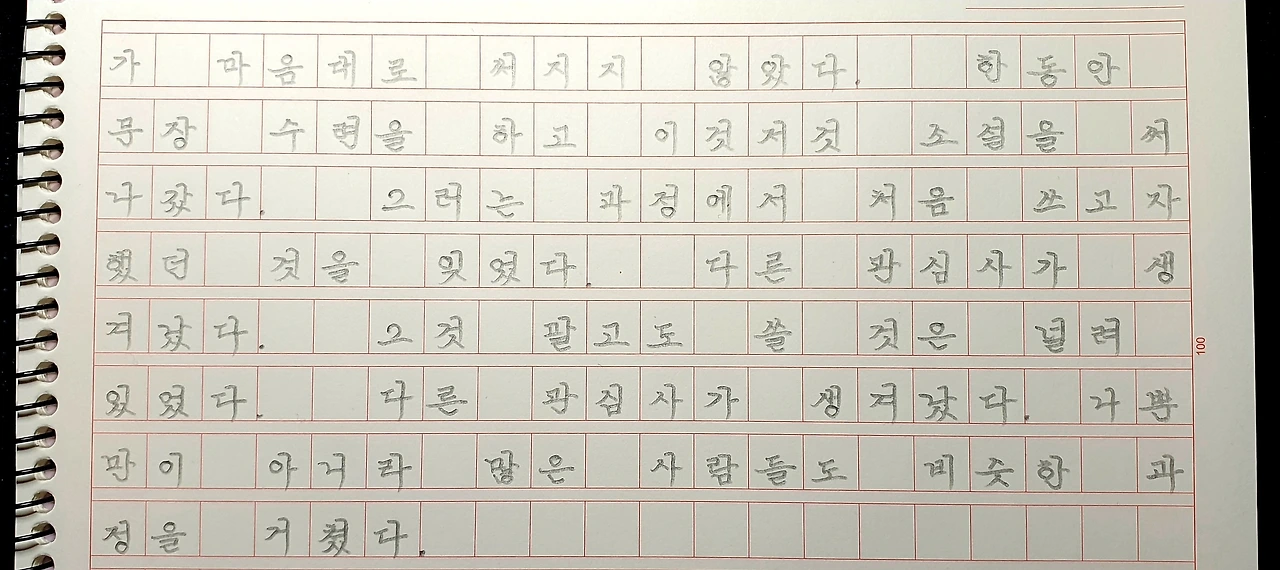 가 마음대로 써지지 않았다. 한동안
문장 수련을 하고 이것저것 소설을 써
나갔다. 그러는 과정에서 처음 쓰고자
했던 것을 잊었다. 다른 관심사가 생
겨났다. 그것 말고도 쓸 것은 널려
있었다. 다른 관심사가 생겨났다. 나뿐
만이 아니라 많은 사람들도 비슷한 과
정을 거쳤다.
100